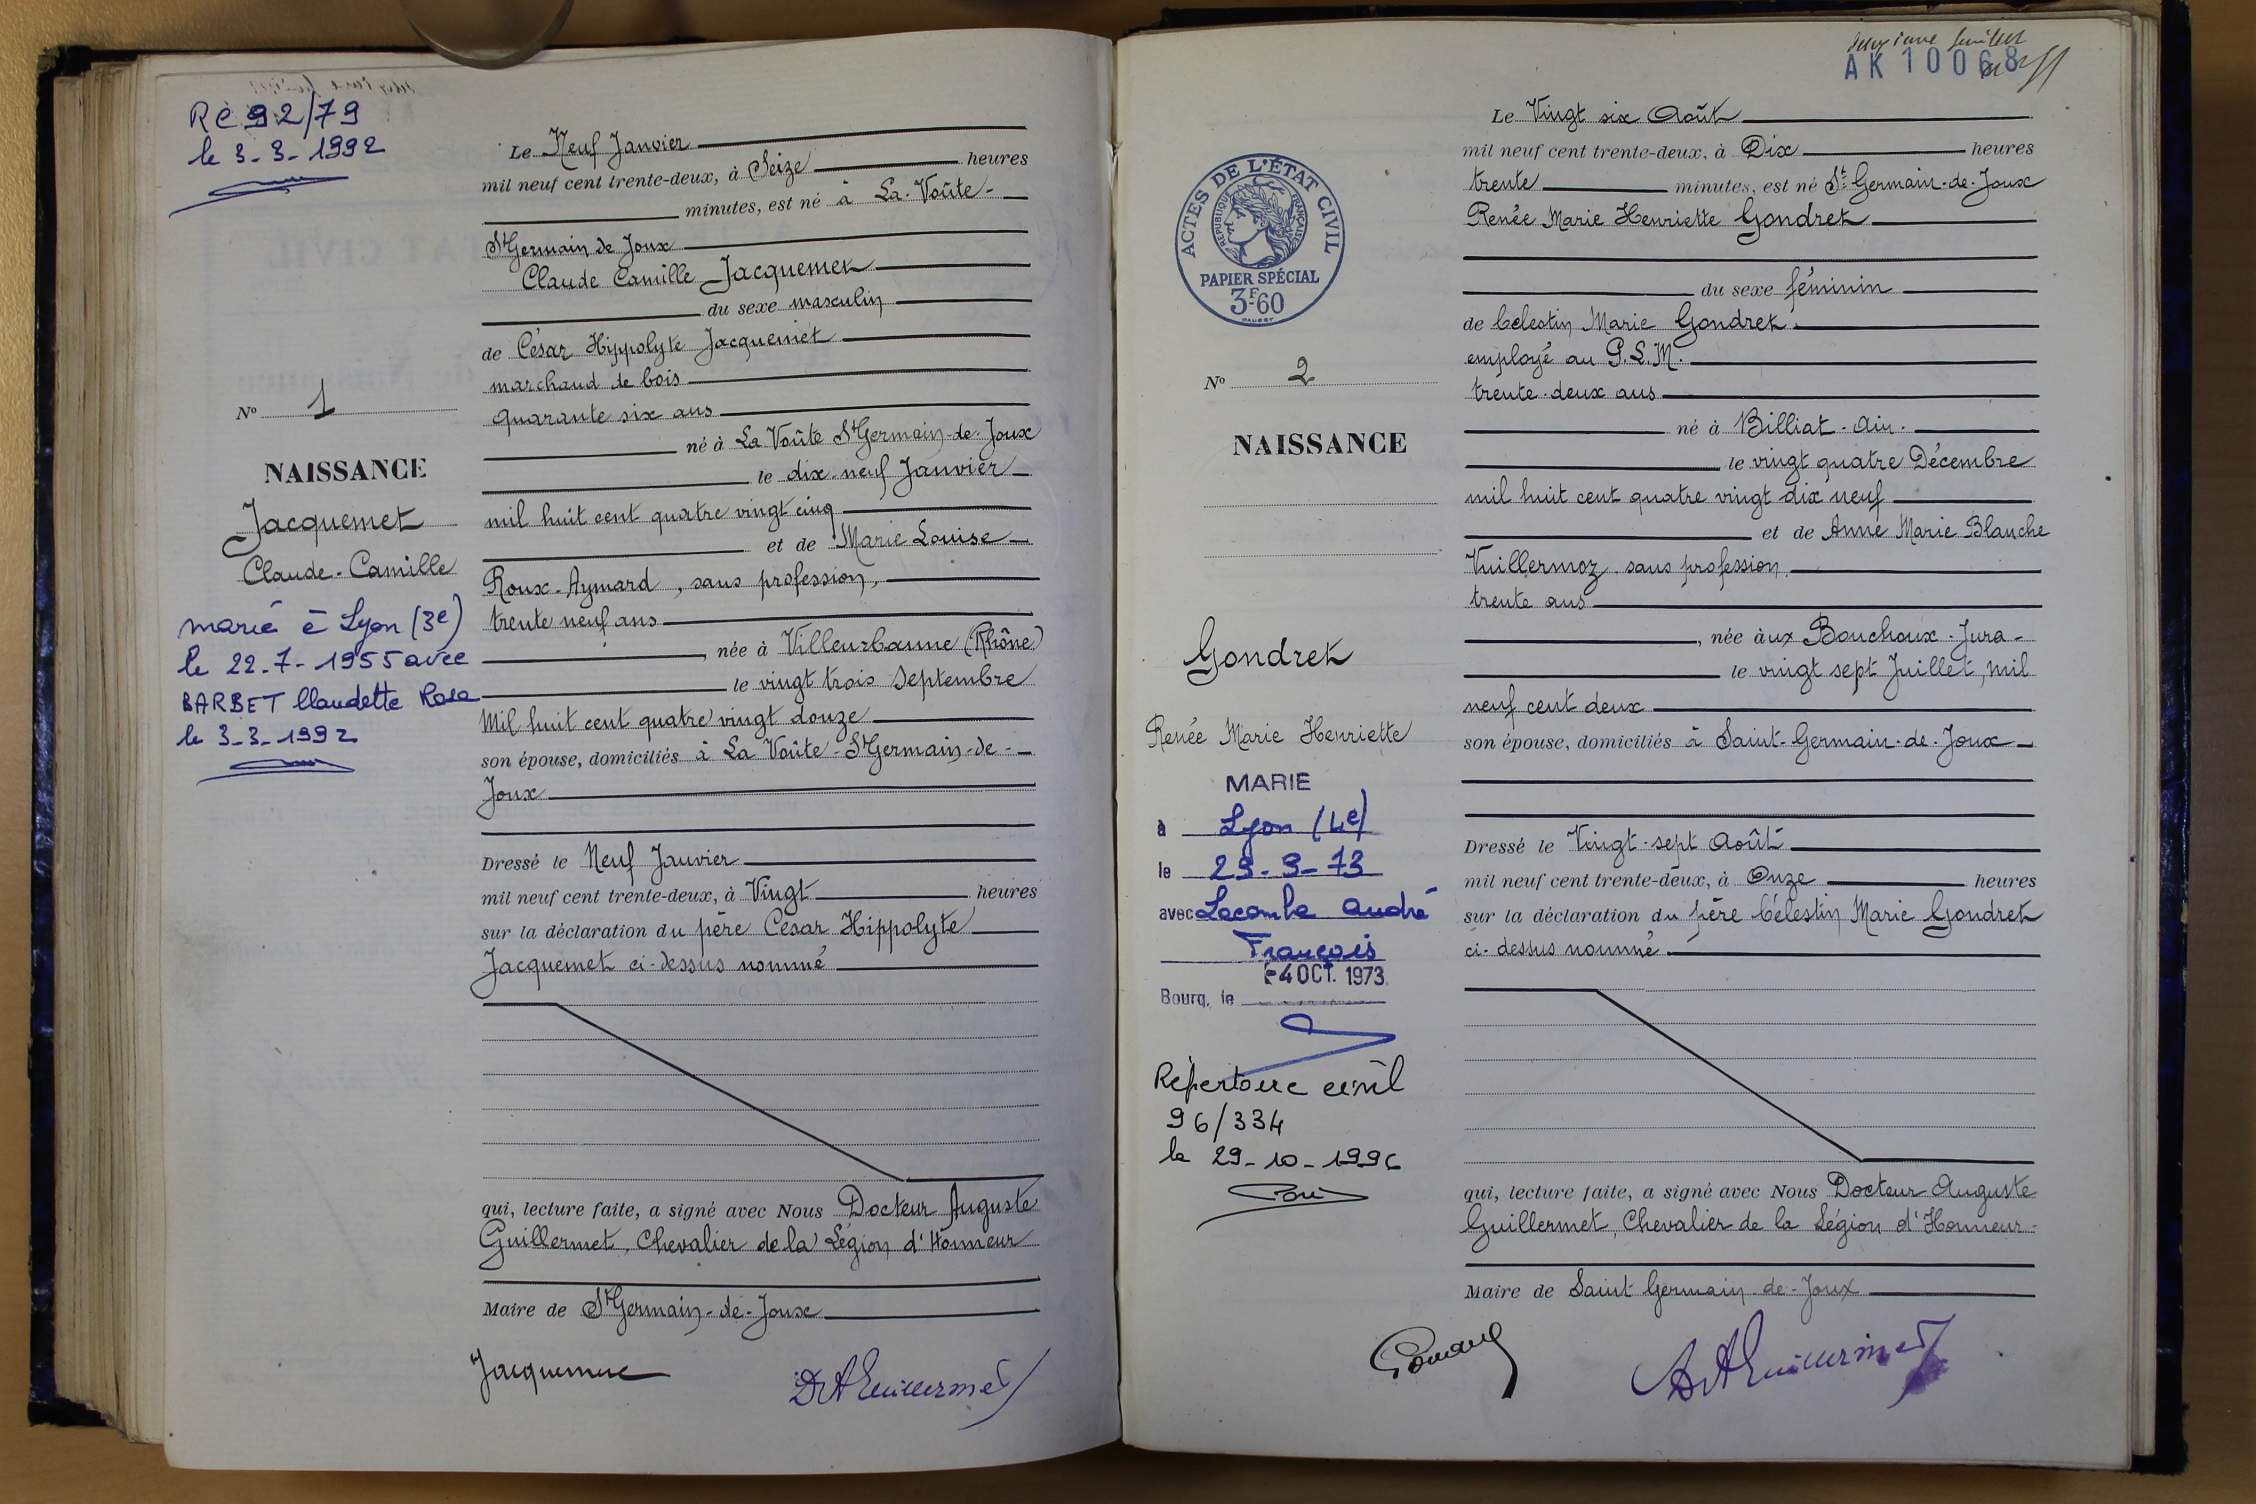 RC 92/79
le 3-3-1992
Le Neuf Janvier
mil neuf cent trente-deux, à Seize heures
minutes, est né à La-Voûte-
St Germain de Joux
Claude Camille Jacquemet
du sexe masculin
de César Hippolyte Jacquemet
marchand de bois
quarante six ans
né à La Voûte St Germain-de-Joux
le dix-neuf Janvier
mil huit cent quatre vingt cinq
et de Marie Louise
Roux-Aymard, sans profession,
trente neuf ans
, née à Villeurbanne (Rhône)
le vingt trois Septembre
Mil huit cent quatre vingt douze
son épouse, domiciliés à La Voûte-St Germain-de-
Joux
Dressé le Neuf Janvier
mil neuf cent trente-deux, à Vingt heures
sur la déclaration du père César Hippolyte
Jacquemet ci-dessus nommé
qui, lecture faite, a signé avec Nous Docteur Auguste
Guillermet, Chevalier de la Légion d'Honneur
Maire de St Germain-de-Joux
Jacquemet
Dr A Guillermet
No 1
NAISSANCE
Jacquemet
Claude-Camille
marié à Lyon (3e)
le 22-7-1955 avec
BARBET Claudette Rosa
le 3-3-1992
deuxième feuillet
AK 10068
Le Vingt six Août
mil neuf cent trente-deux, à Dix heures
trente minutes, est né St Germain-de-Joux
Renée Marie Henriette Gondret
du sexe féminin
de Célestin Marie Gondret
employé au P.L.M.
trente-deux ans
né à Billiat-Ain-
le vingt quatre Décembre
mil huit cent quatre vingt dix neuf
et de Anne Marie Blanche
Vuillermoz sans profession
trente ans
, née àux Bouchoux-Jura-
le vingt sept Juillet, mil
neuf cent deux
son épouse, domiciliés à Saint-Germain-de-Joux
Dressé le Vingt-sept Août
mil neuf cent trente-deux, à Onze heures
sur la déclaration du père Célestin Marie Gondret
ci-dessus nommé
qui, lecture faite, a signé avec Nous Docteur Auguste
Guillermet, Chevalier de la Légion d'Honneur-
Maire de Saint Germain-de-Joux
Dr A Guillermet
ACTES DE L'ÉTAT CIVIL
RÉPUBLIQUE FRANÇAISE
PAPIER SPÉCIAL
3F60
No 2
NAISSANCE
Gondret
Renée Marie Henriette
MARIE
à Lyon (4e)
le 29-9-73
avec Lacombe André
François
-4 OCT. 1973
Bourg, le
Répertoire civil
96/334
le 29-10-1996